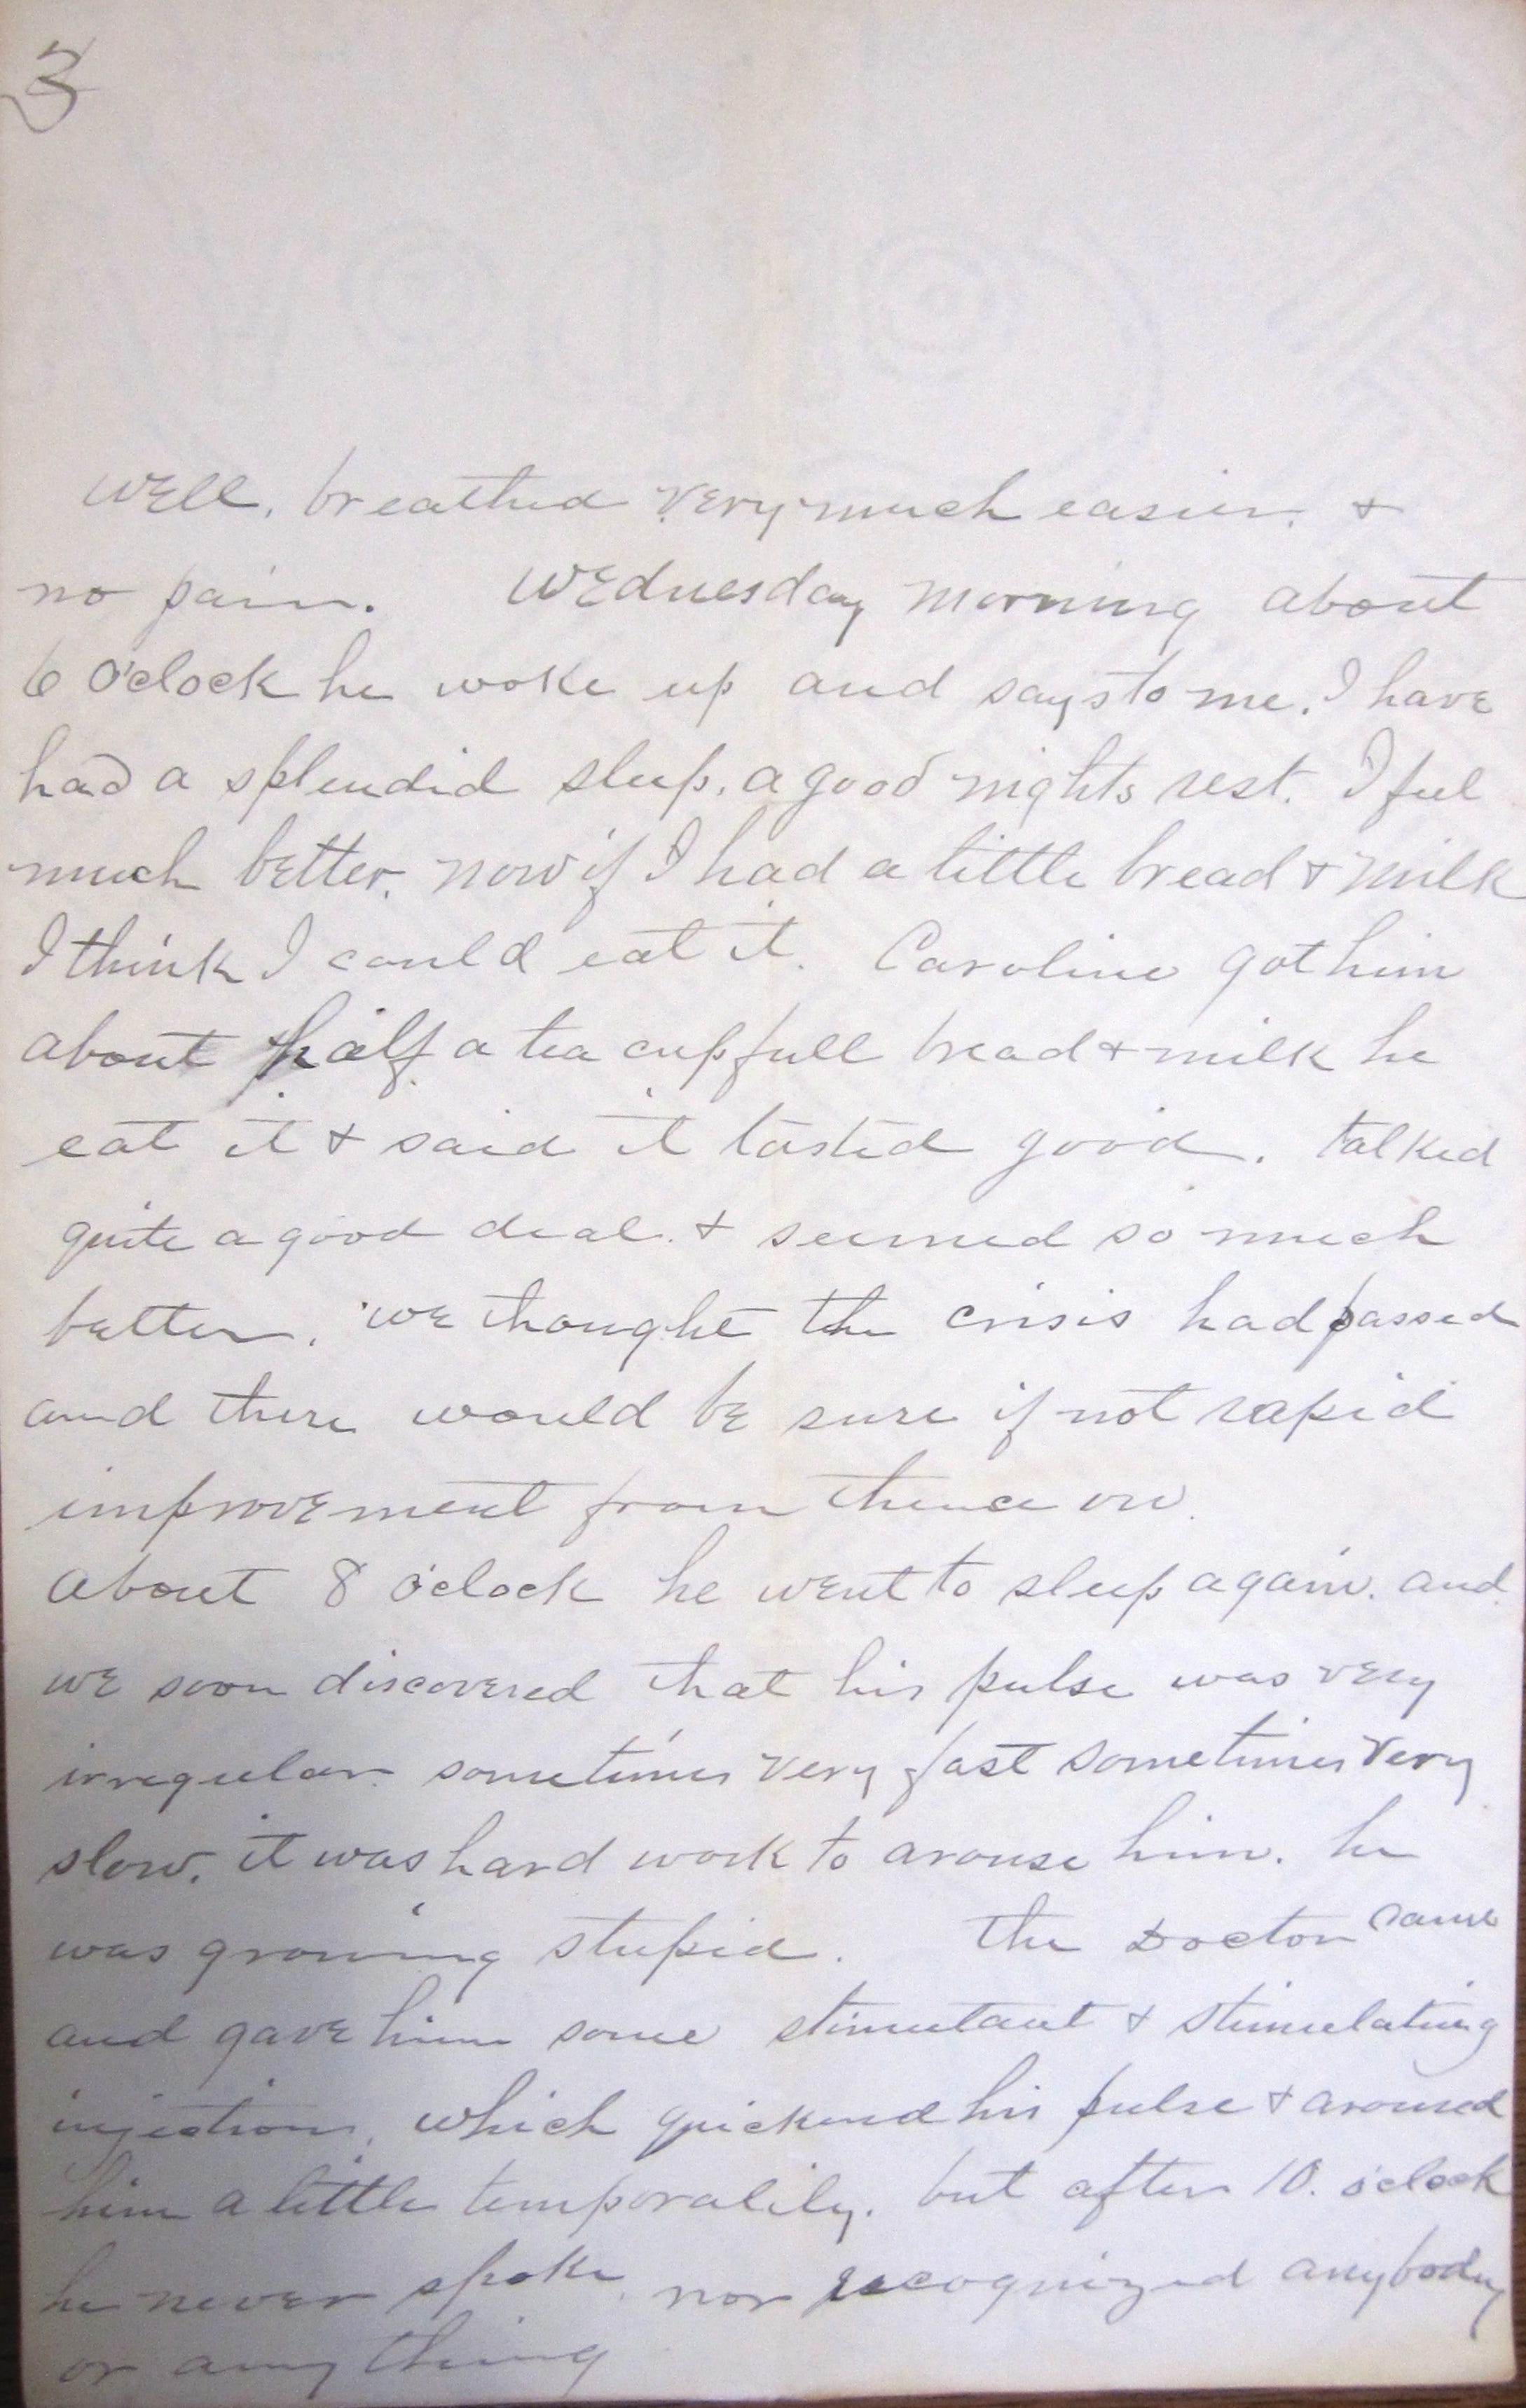 3
well. breathed very much easier. &
no pain. Wednesday morning about
6 o'clock he woke up and says to me. I have
had a splendid sleep. a good nights rest. I feel
much better. now if I had a little bread & milk
I think I could eat it. Caroline got him
about half a tea cup full bread & milk he
eat it & said it tasted good. talked
quite a good deal. & seemed so much
better. we thought the crisis had passed
and there would be sure if not rapid
improvement from thence on.
about 8 o'clock he went to sleep again. and
we soon discovered that his pulse was very
irregular. sometimes very fast sometimes very
slow. it was hard work to arouse him. he
was growing stupid. The Doctor came
and gave him some stimulant & stimulating
injections, which quickened his pulse & aroused
him a little temporalily. but after 10. o'clock
he never spoke, nor recognized anybody
or anything